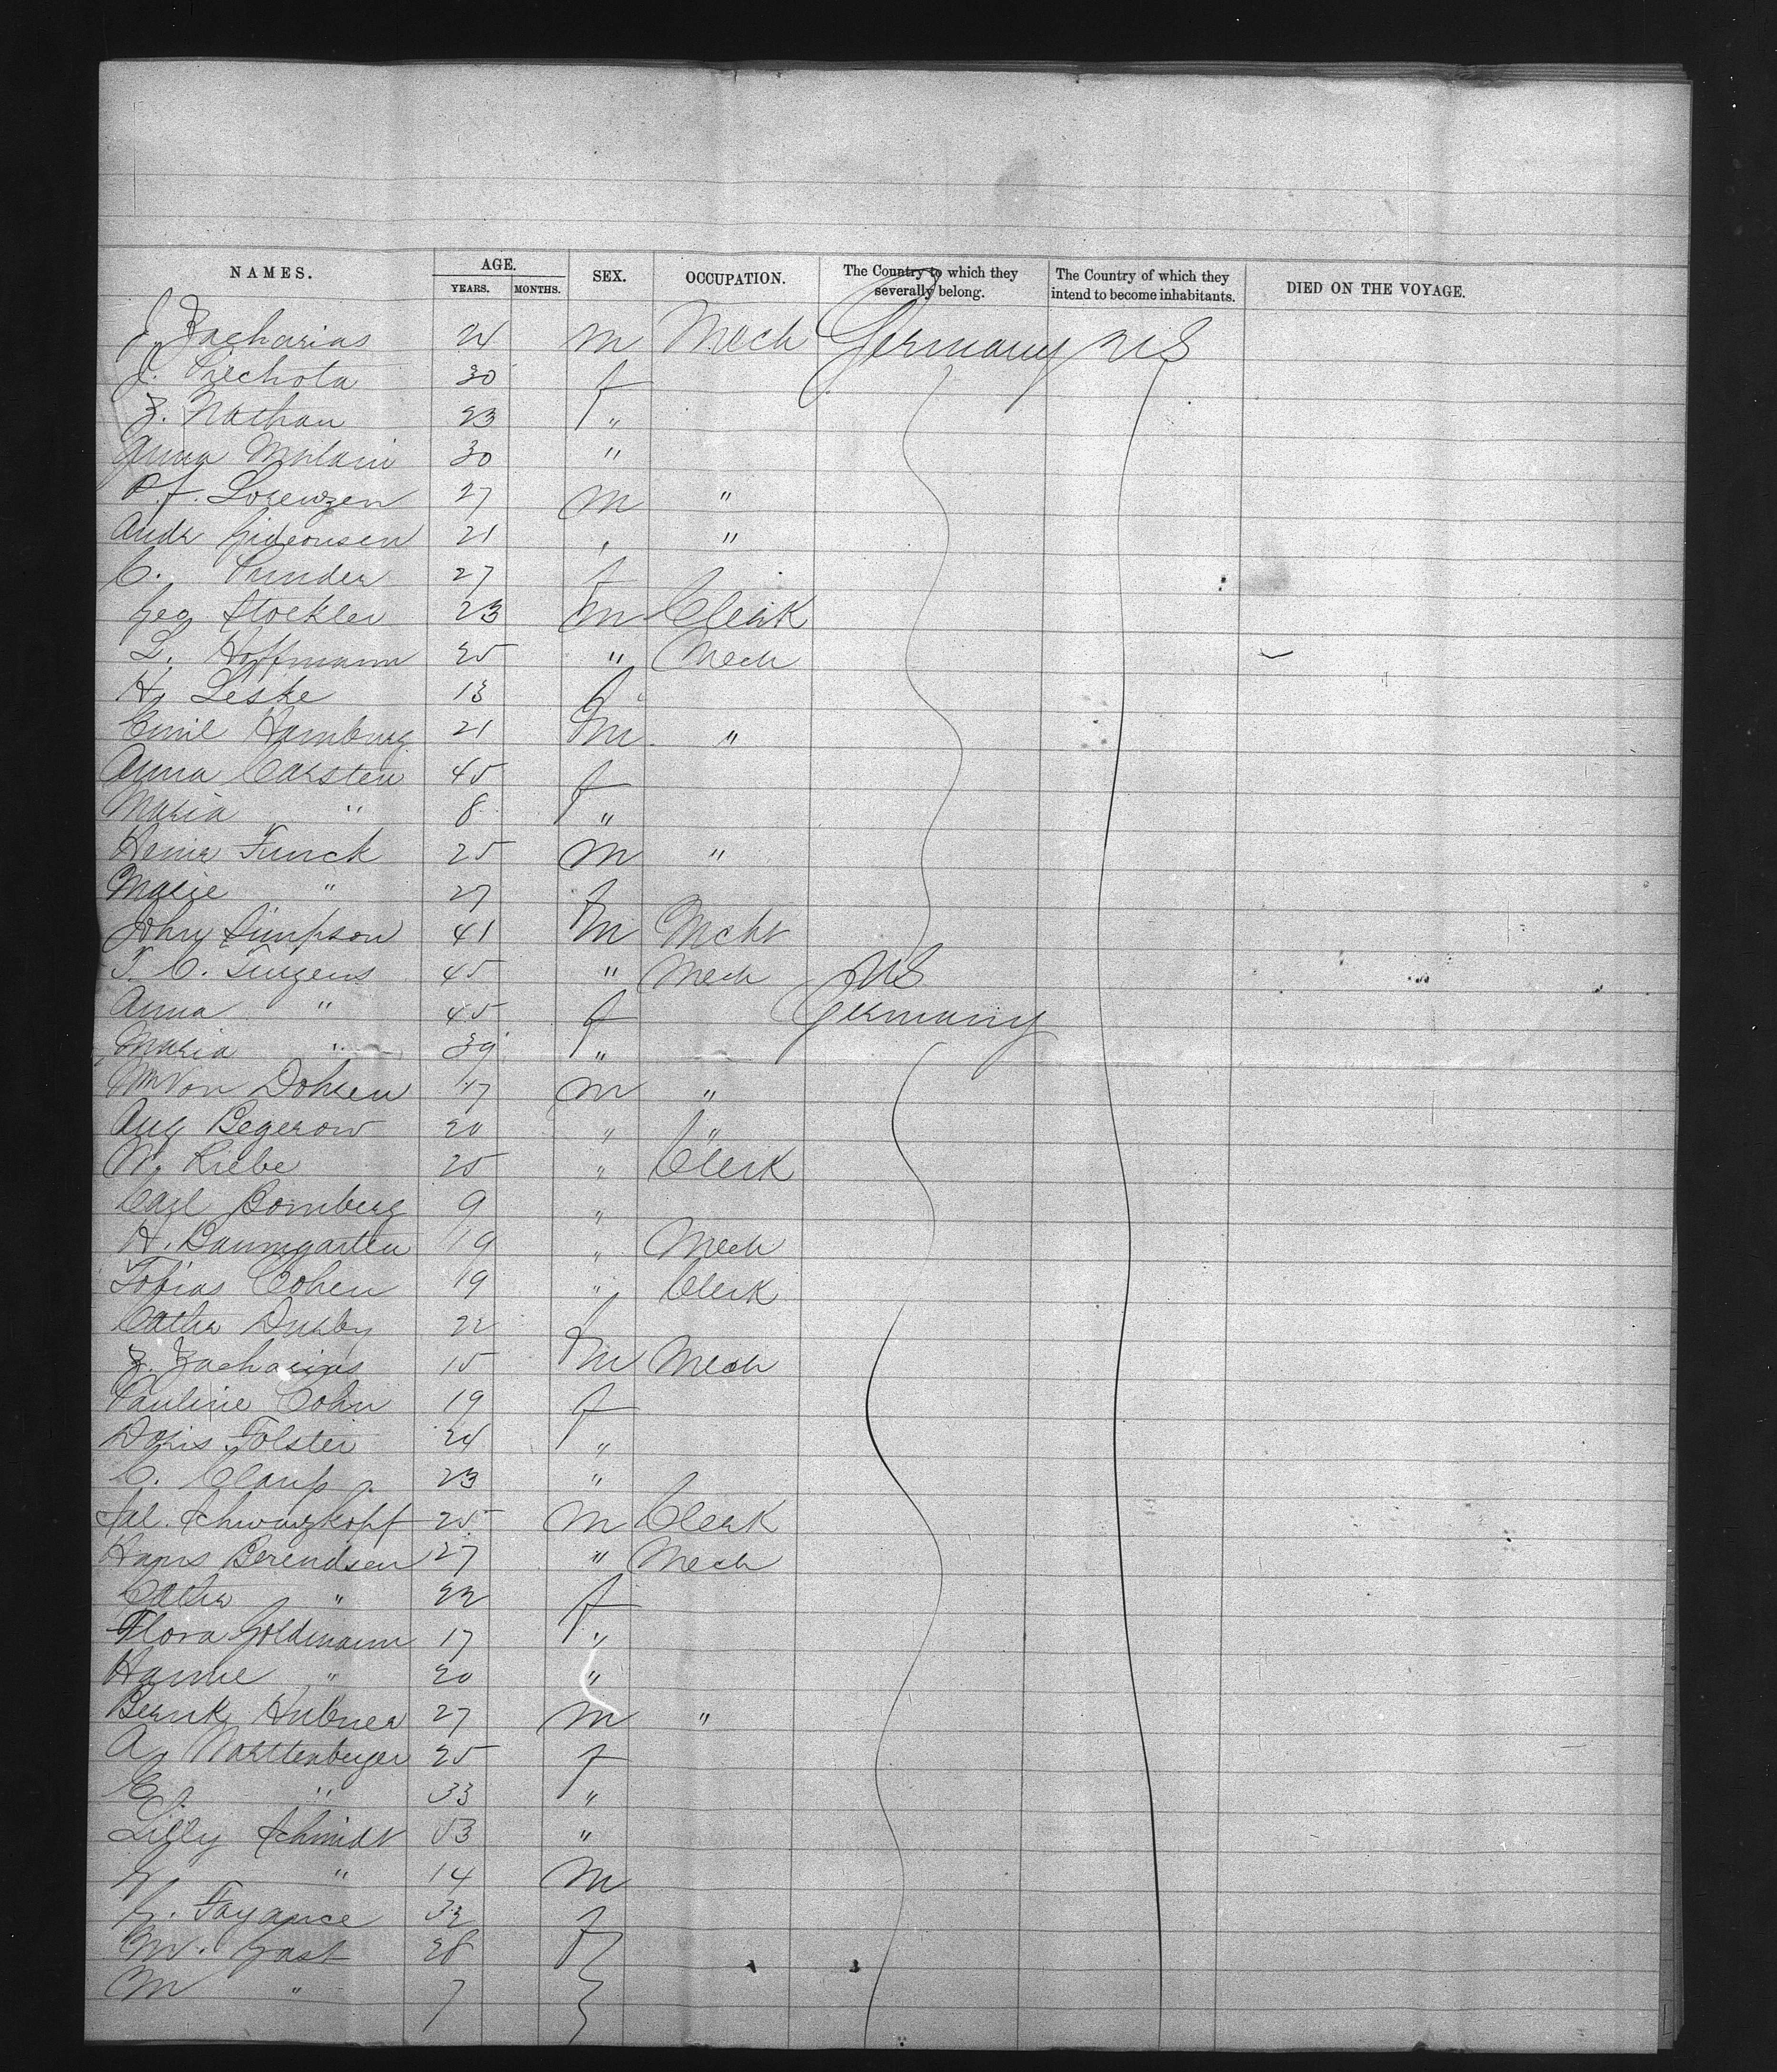 NAMES. AGE. YEARS. MONTHS. SEX. OCCUPATION. The Country to which they severally belong. The Country of which they intend to become inhabitants. DIED ON THE VOYAGE.
J. Zacharias 24 m Mech Germany US
J. Piechota 30 f
Z. Nathan 23 "
Anna 30 "
P. f. Lorenzen 27 m "
Andr Gideonsen 21 "
C. 27 f
Geo Stockler 23 m Clerk
L. Hoffmann 25 " Mech
H. Leske 13 f
Emil Hamburg 21 m "
Anna Carsten 45 f
Maria " 8 "
Heinr Funck 25 m "
Marie " 27 f
John Simpson 41 m Mcht
T. C. 45 " Mech US
Anna " 45 f Germany
Maria " 39 "
Wm Von Dohsen 17 m "
Aug Begerow 20 " "
W. Liebe 25 " Clerk
Carl Bomberg 9 "
H. Baumgarten 19 " Mech
Tobias Cohen 19 " Clerk
Cathr 22 f
Z. Zacharias 15 m Mech
Pauline Cohn 19 f
Doris Tolster 24 "
C. 23 "
Sal. Schwarzkopf 25 m Clerk
Hans Berendsen 27 " Mech
Cathr " 22 f
Flora Goldmann 17 "
Hanne " 20 "
Hubner 27 m "
A. 25 f
E. " 33 "
Lilly Schmidt 53 "
" 14 m
Fayance 32 f
M. Gast 28
M " 7